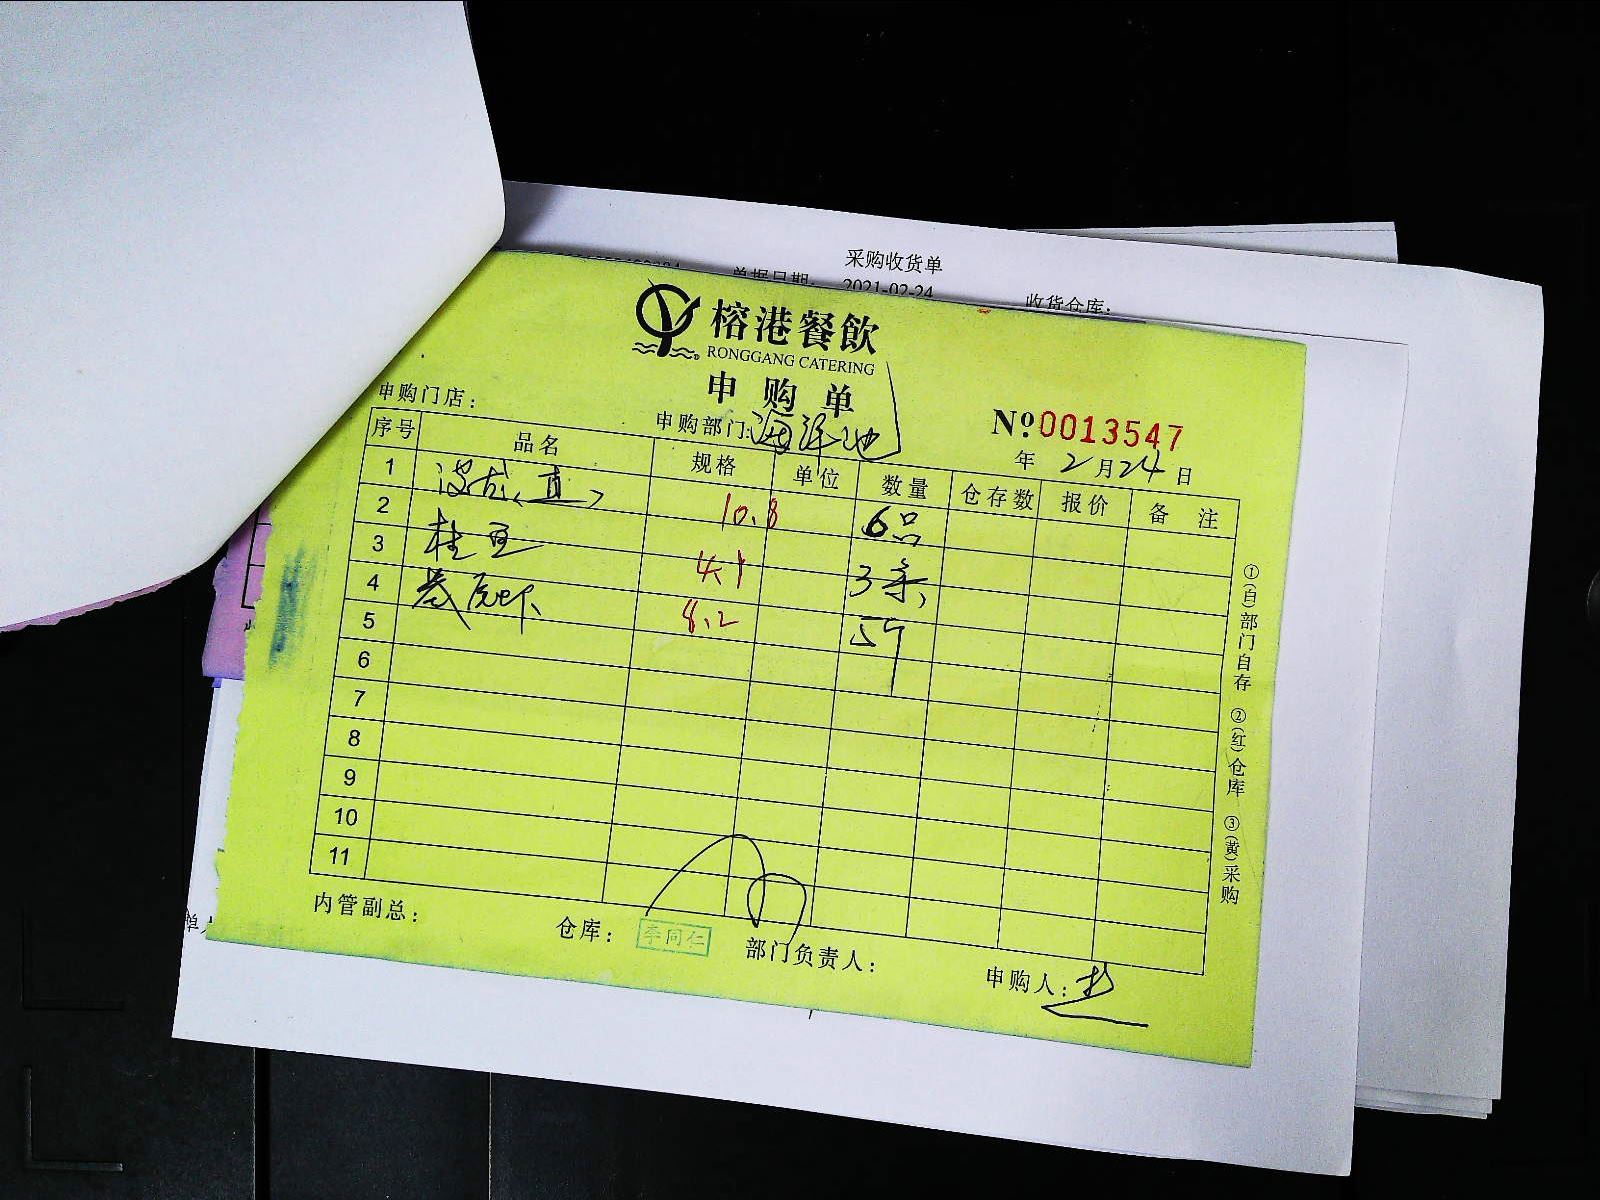 采购收货单
单据日期: 2021-02-24 收货仓库:
榕港餐飲
RONGGANG CATERING
申购单
申购门店: 申购部门:海鲜池 №0013547
年 2月24日
序号 品名 规格 单位 数量 仓存数 报价 备注
1 波龙(直) 10.8 6只
2 桂鱼 4.1 3条
3 虎虾 8.2 5斤
4
5
6
7
8
9
10
11
①(白)部门自存 ②(红)仓库 ③(黄)采购
内管副总: 仓库: 李同仁 部门负责人: 申购人: